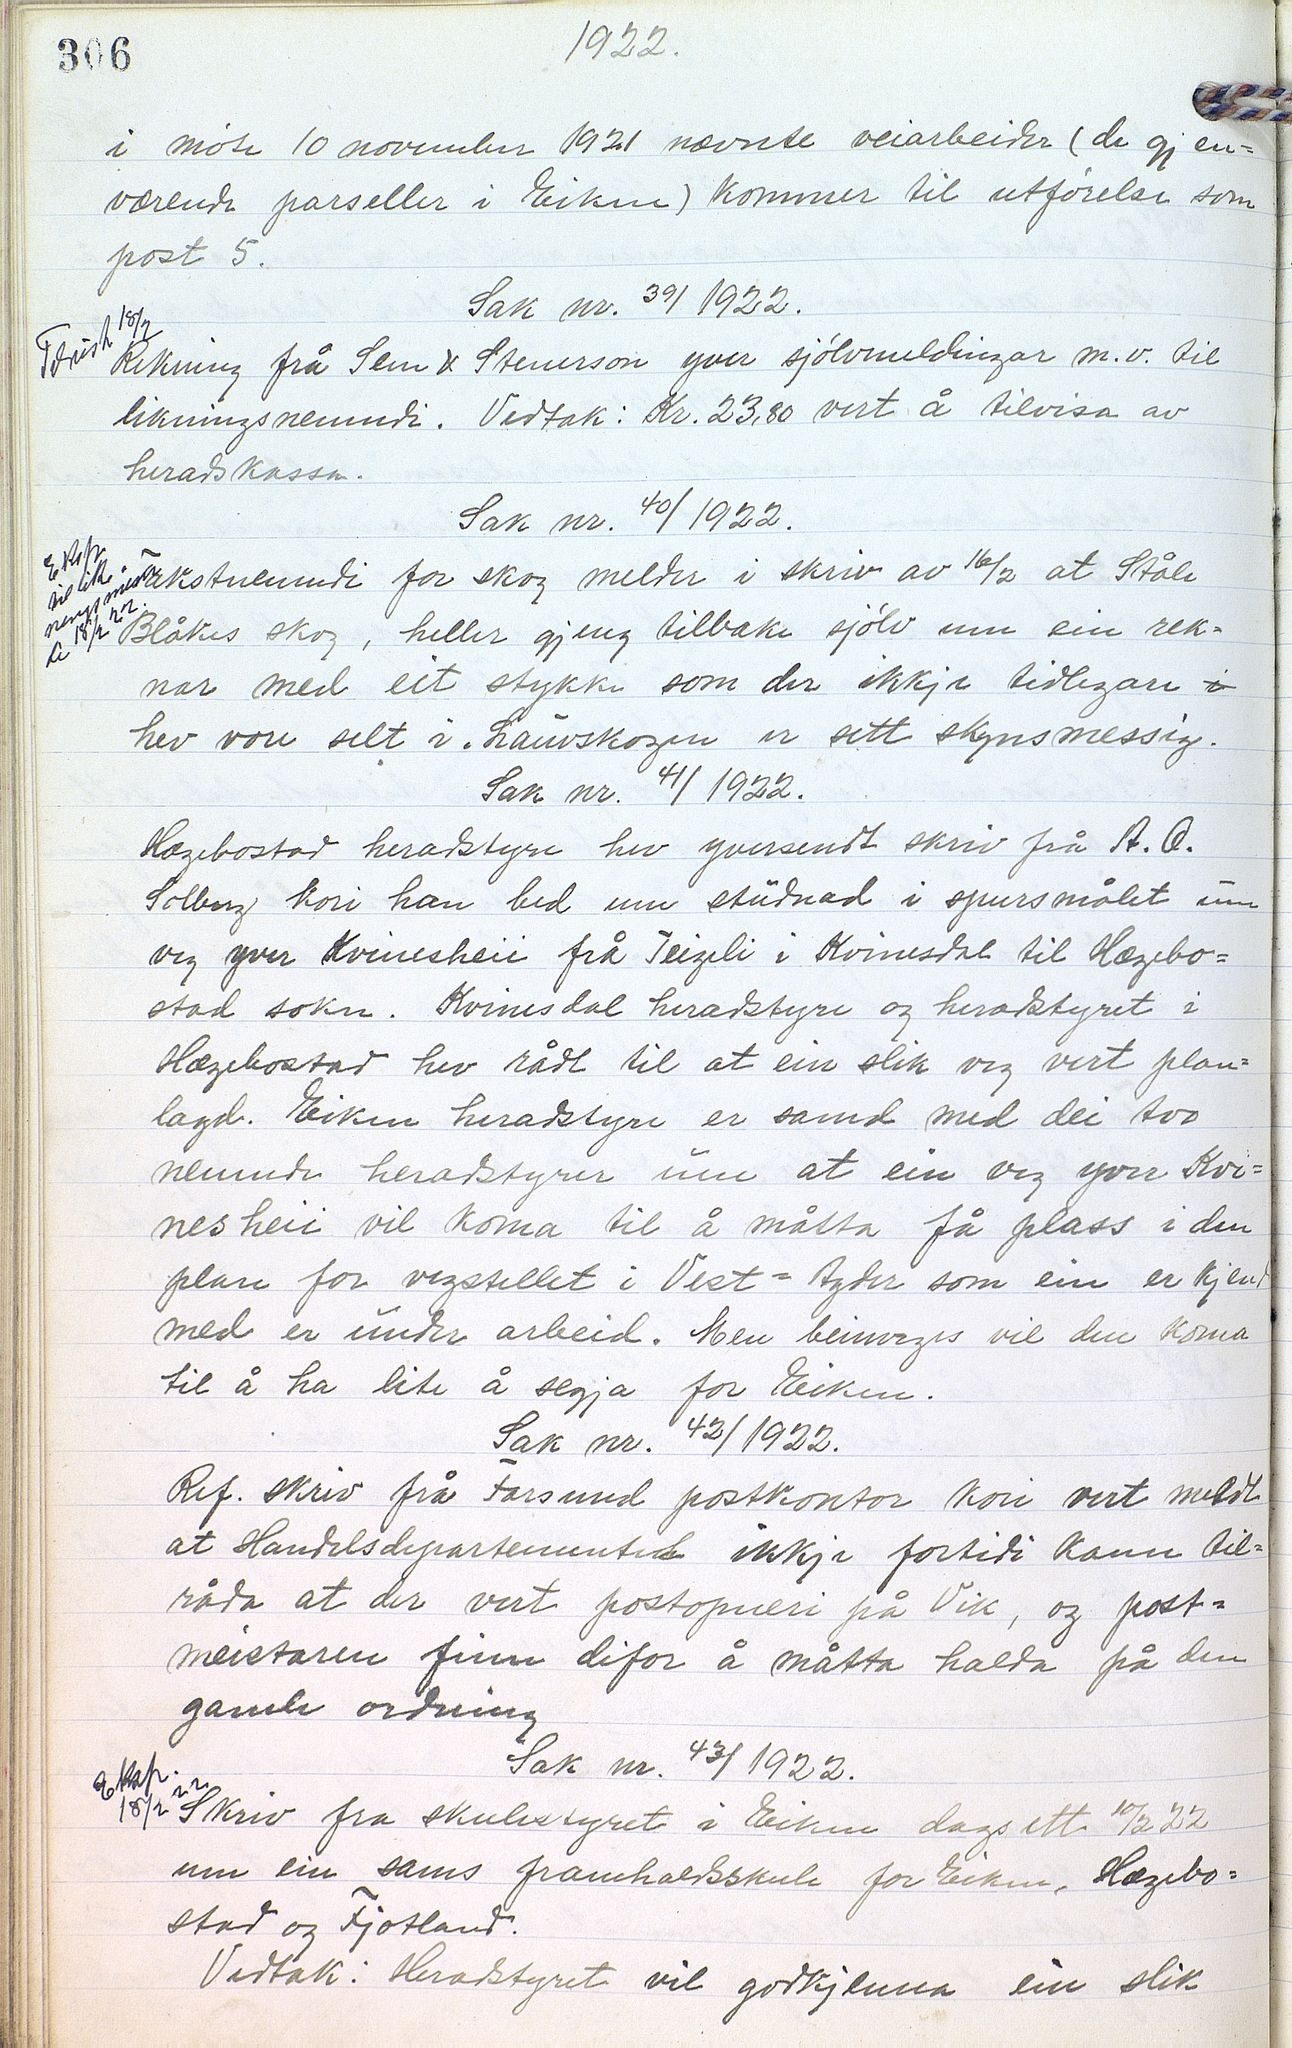 306
1922.
i møte 10 november 1921 nævnte veiarbeider (de gjen=
værende parseller i Eiken) kommer til utførelse som
post 5.
Sak nr. 39/1922.
18/2
Rekning frå Sem & Stenersen yver sjølvmeldingar m.v. til
likningsnemndi. Vedtak: Kr. 23,80 vert å tilvisa av
heradskassa.
Sak nr. 40/1922.
Eksp.
til lik-
nings nemn
di 18/2 22.
Takstnemndi for skog melder i skriv av 16/2 at Ståle
Blåkes skog, heller gjeng tilbake sjølv um ein rek-
nar med eit stykke som der ikkje tidlegare i
hev vore selt i. Lauvskogen er sett skynsmessig.
Sak nr. 41/1922.
Hægebostad heradstyre hev yversendt skriv frå A. O.
Solberg kori han bed um studnad i spursmålet um
veg yver Kvinesheii frå Teigeli i Kvinesdal til Hægebo=
stad sokn. Kvinesdal heradstyre og heradstyret i
Hægebostad hev rådt til at ein slik veg vert plan=
lagd. Eiken heradstyre er samd med dei tvo
nemnde heradstyrer um at ein veg yver Kvi=
nesheii vil koma til å måtta få plass i den
plan for vegstellet i Vest=Agder som ein er kjend
med er under arbeid. Men beinveges vil den koma
til å ha lite å segja for Eiken.
Sak nr. 42/1922.
Ref. skriv frå Farsund postkontor kori vert meldt
at Handelsdepartementet ikkje fortidi kann til=
råda at der vert postopneri på Vik, og post=
meistaren finn difor å måtta halda på den
gamle ordning
Sak nr. 43/1922.
Eksp.
18/2 22
Skriv fra skulestyret i Eiken dagsett 10/2 22
um ein sams framhaldsskule for Eiken, Hægebo=
stad og Fjotland.
Vedtak: Heradstyret vil godkjenna ein slik